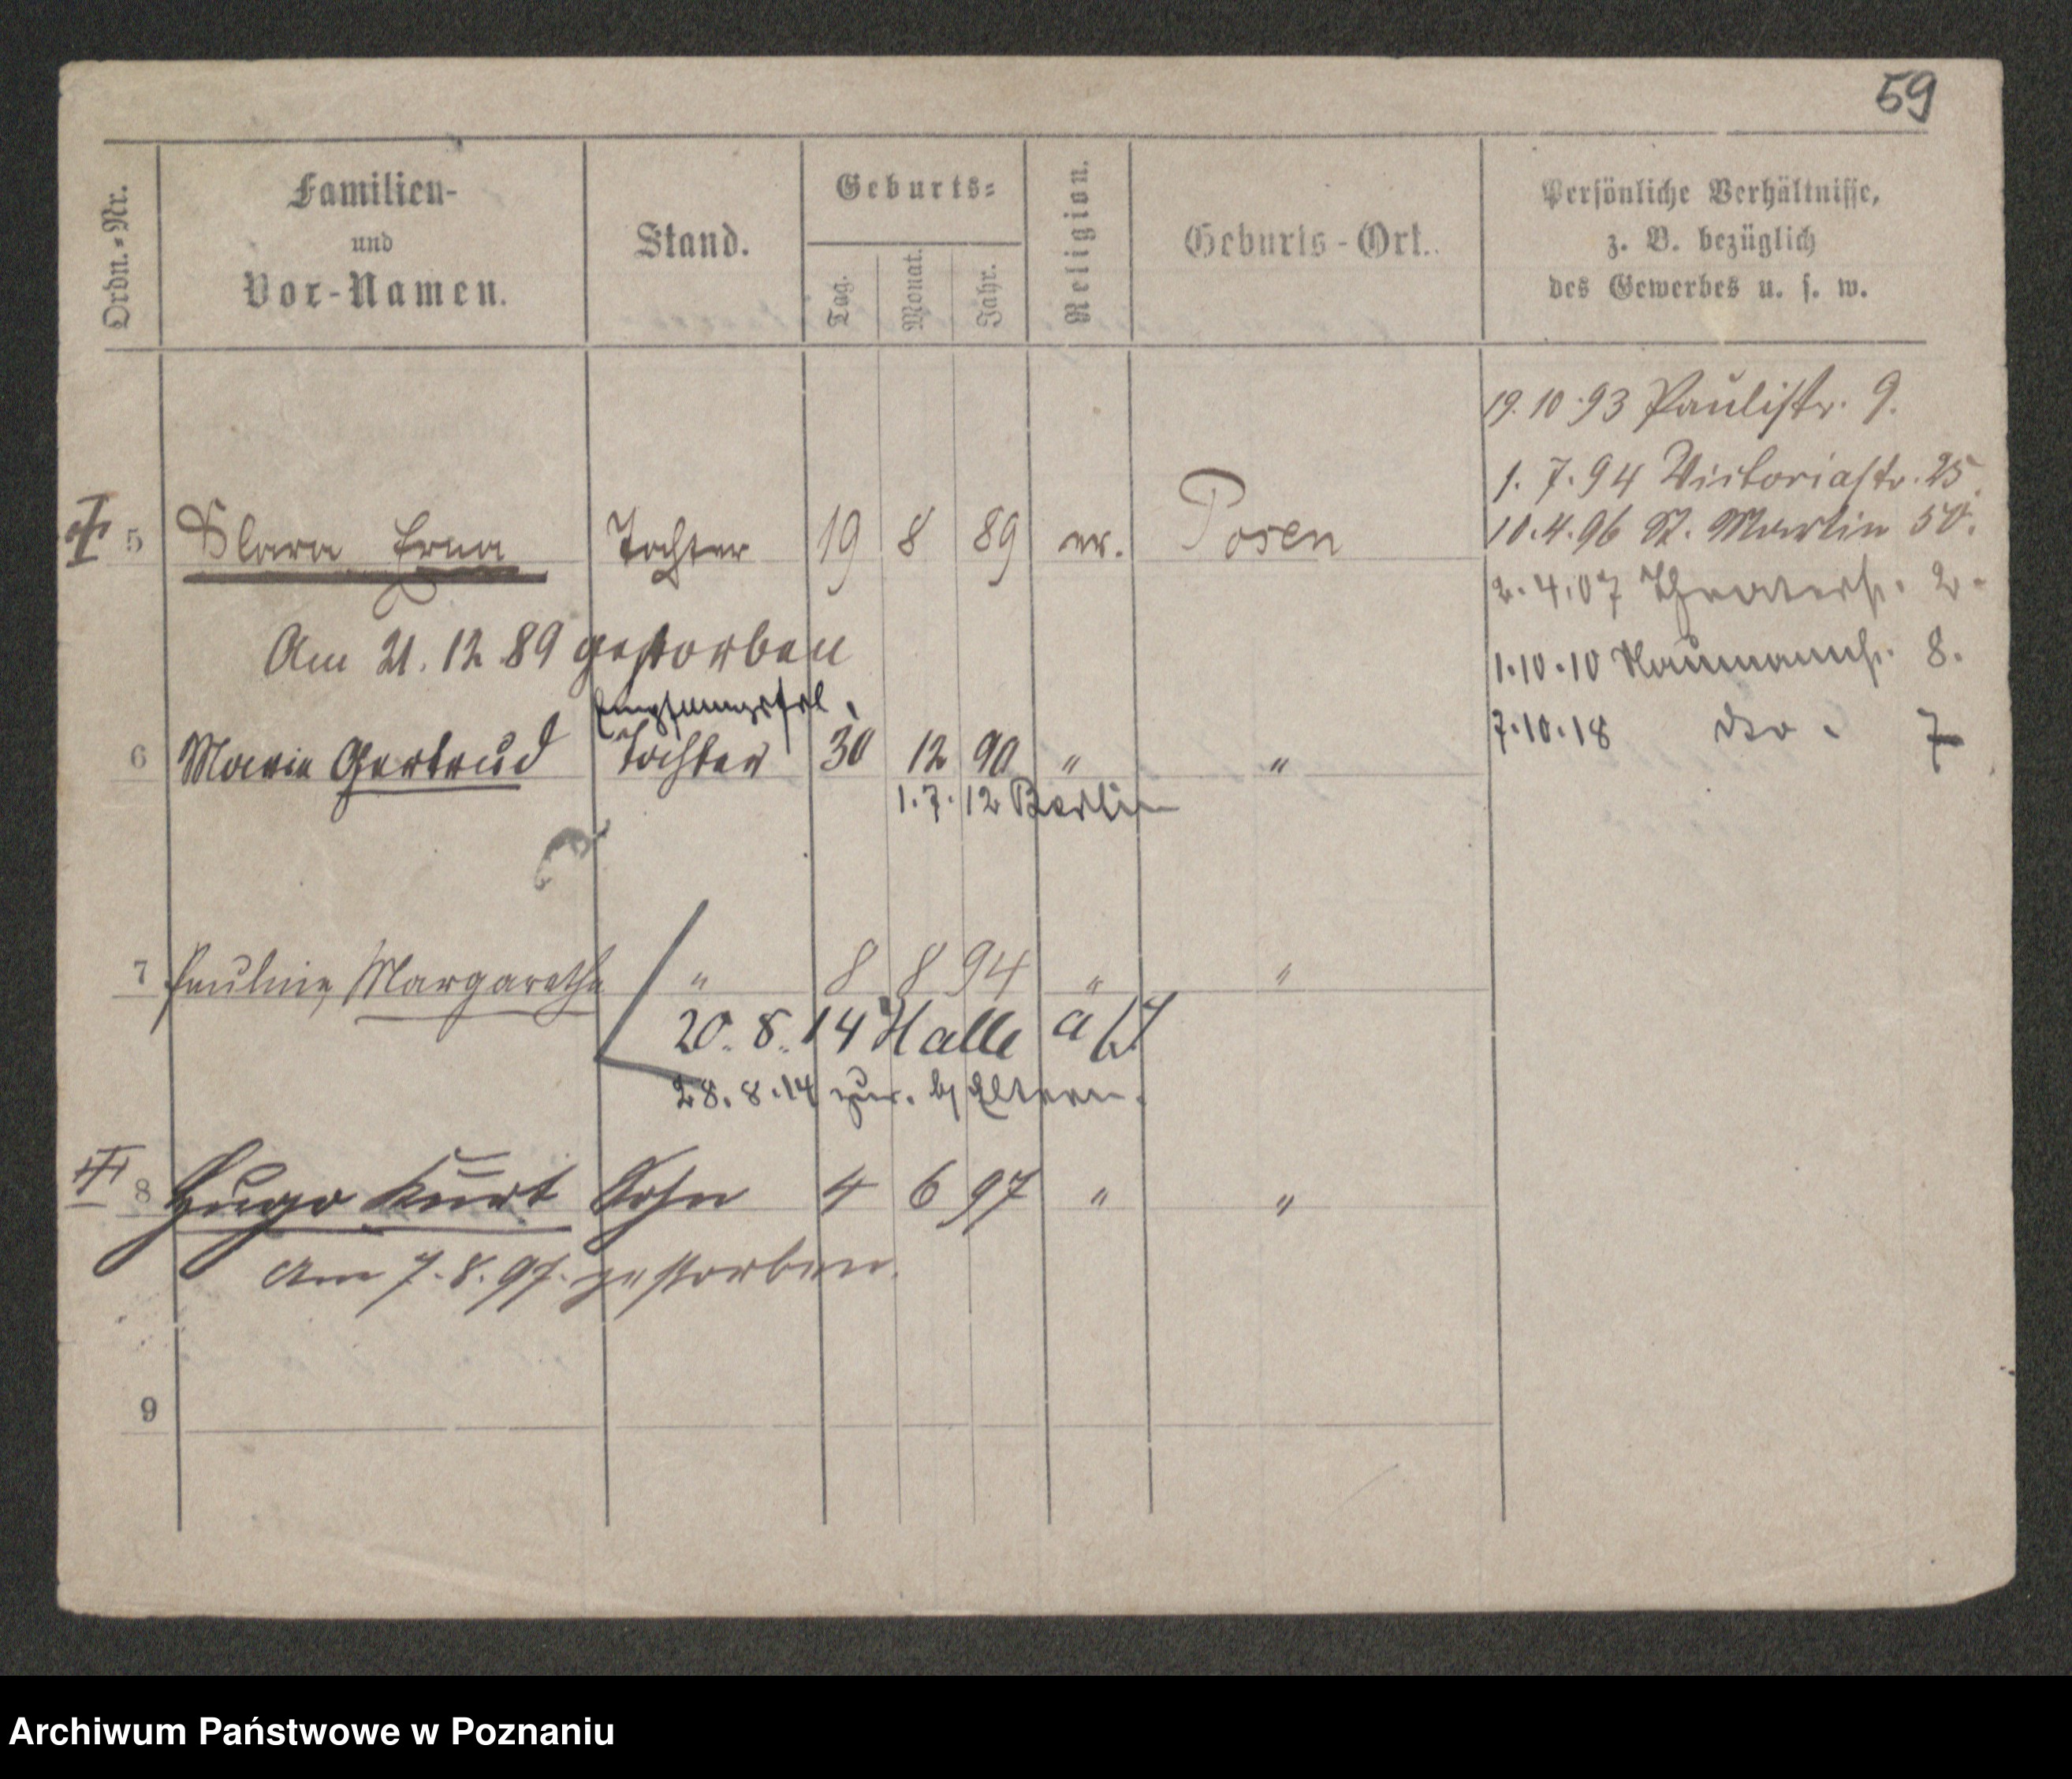 59
Ordn.=Nr.
Familien-
und
Vor-Namen.
Stand.
Geburts=
Tag.
Monat.
Jahr.
Religion.
Geburts-Ort.
Persönliche Verhältnisse,
z. B. bezüglich
des Gewerbes u. s. w.
19.10.93 Paulistr. 9.
1.7.94 Victoriastr. 25
10.4.96 St. Martin 50.
2.4.07 Theaterstr. 2.
1.10.10 Naumannstr. 8.
7.10.18 do. 7
5 Clara Erna Tochter 19 8 89 ev. Posen
Am 21.12.89 gestorben
6 Marie Gertrud Tochter 30 12 90 " "
1.7.12 Berlin
7 Pauline Margarethe " 8 8 94 " "
20.8.14 Halle a/
28.8.14 zur. b/ Eltern.
8 Hugo Kurt Sohn 4 6 97 " "
Am 7.8.97. gestorben.
9
Archiwum Państwowe w Poznaniu